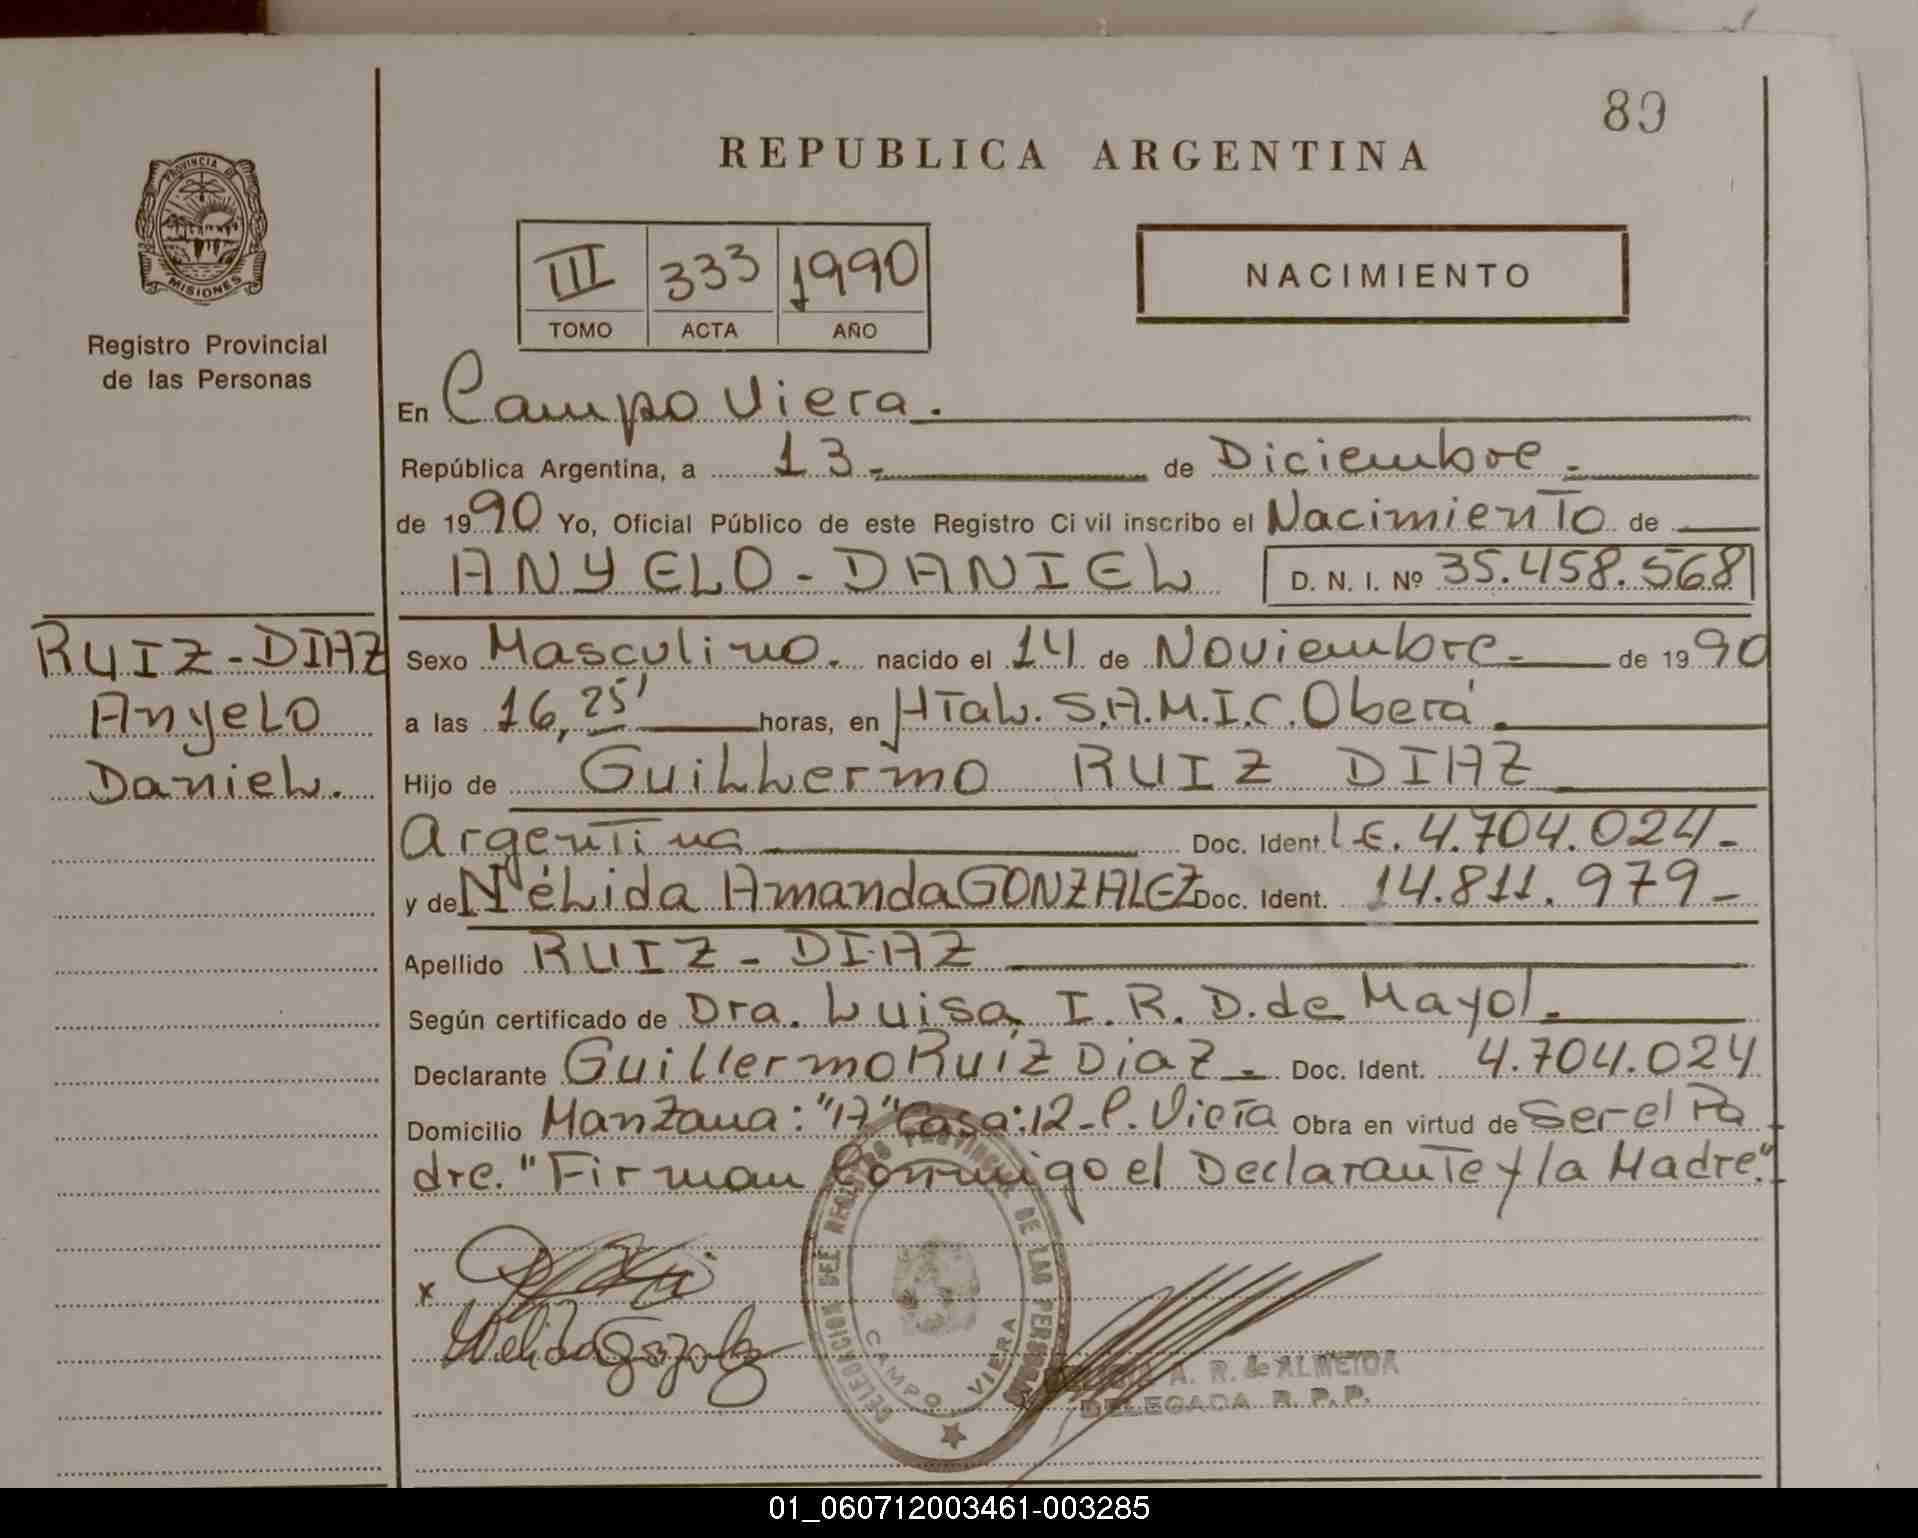 89
REPUBLICA ARGENTINA
PROVINCIA DE
MISIONES
Registro Provincial
de las Personas
III 333 1990
TOMO ACTA AÑO
NACIMIENTO
En Campo Viera.
República Argentina, a 13- de Diciembre-
de 1990 Yo, Oficial Público de este Registro Ci vil inscribo el Nacimiento de
ANYELO-DANIEL D. N. I. Nº 35.458.568
RUIZ-DIAZ
Anyelo
Daniel.
Sexo Masculino. nacido el 14 de Noviembre- de 1990
a las 16,25' horas, en Htal. S.A.M.I.C. Oberá.
Hijo de Guillermo RUIZ DIAZ
Argentina Doc. Ident. L.E. 4.704.024-
y de Nélida Amanda GONZALEZ Doc. Ident. 14.811.979-
Apellido RUIZ-DIAZ
Según certificado de Dra. Luisa I. R. D. de Mayol.
Declarante Guillermo Ruiz Diaz- Doc. Ident. 4.704.024
Domicilio Manzana: "A" Casa: 12- C. Viera Obra en virtud de Ser el Pa
dre. "Firman Conmigo el Declarante y la Madre."
x
Nelida Gonzalez
DELEGACION DEL REGISTRO PROVINCIAL DE LAS PERSONAS
CAMPO VIERA
A. R. de ALMEIDA
DELEGADA R. P. P.
01_060712003461-003285